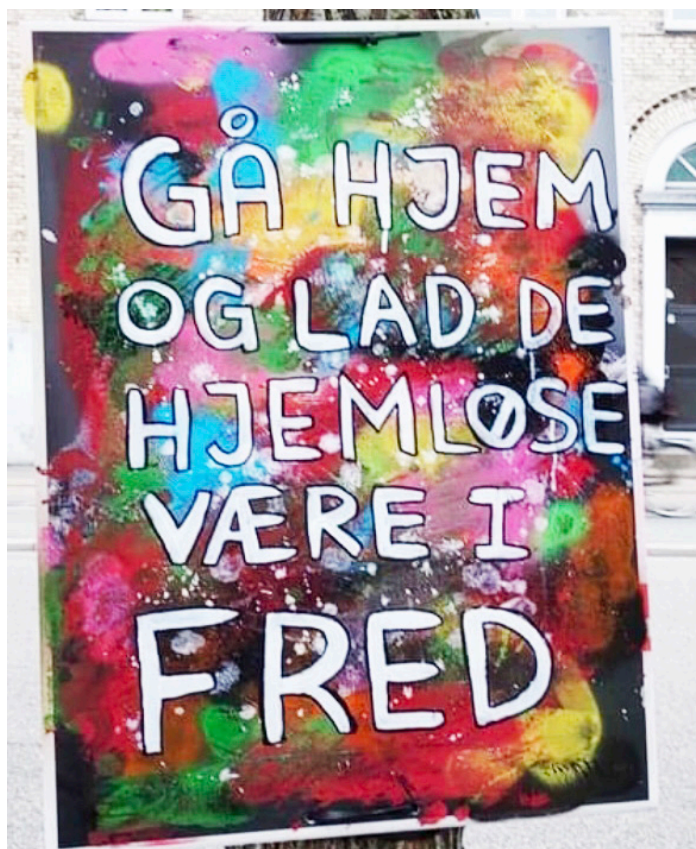 GÅ HJEM
OG LAD DE
HJEMLØSE
VÆRE I
FRED